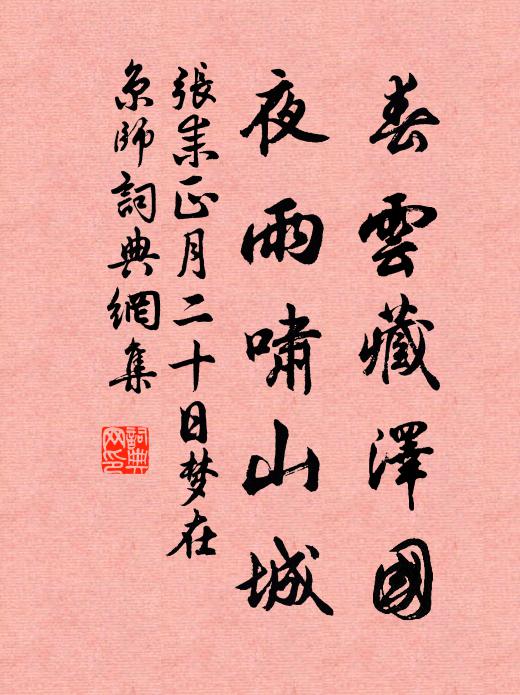 春雲藏澤國
夜雨嘯山城
張耒正月二十日梦在
京師詞典網集
詞典
网印